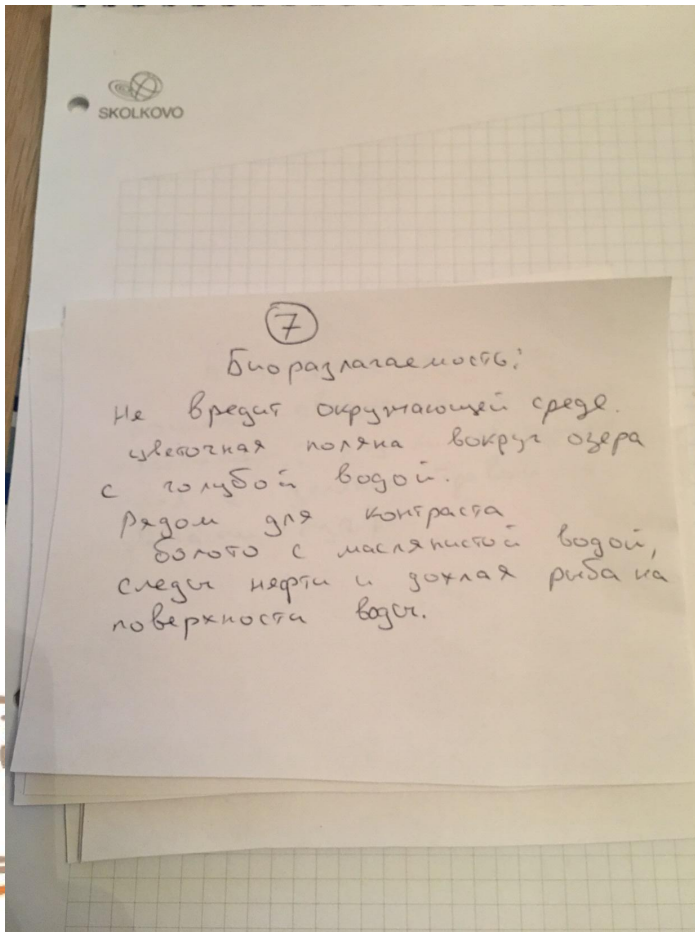 SKOLKOVO
7
Биоразлагаемость:
Не вредит окружающей среде.
цветочная поляна вокруг озера
с голубой водой.
Рядом для контраста
болото с маслянистой водой,
следы нефти и дохлая рыба на
поверхности воды.